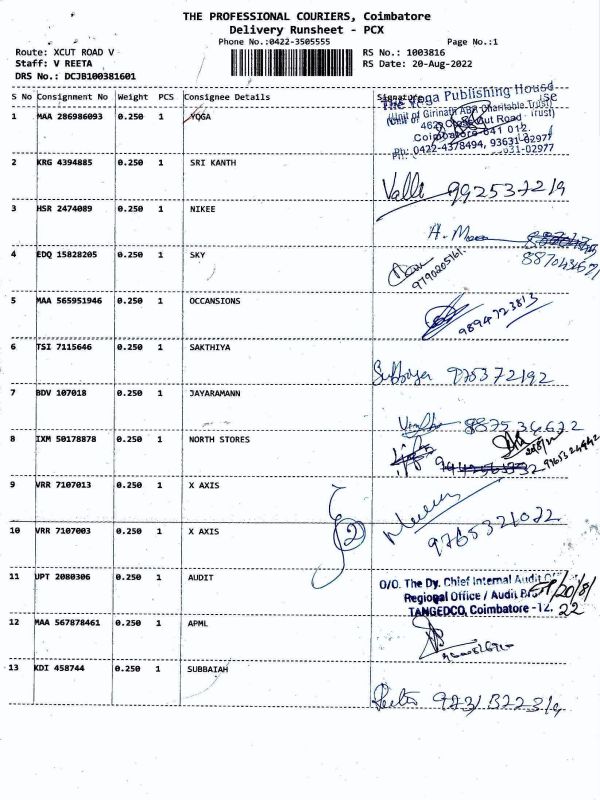 THE PROFESSIONAL COURIERS, Coimbatore
Delivery Runsheet - PCX
Phone No.:0422-3505555
Page No.:1
Route: XCUT ROAD V
RS No.: 1003816
Staff: V REETA
RS Date: 20-Aug-2022
DRS No.: DCJB100381601
S No Consignment No Weight PCS Consignee Details Signature
The Yoga Publishing House
(Unit of Girinath ABA Charitable Trust)
Coimbatore-641 012.
Ph: 0422-4378494, 93631-02977
1 MAA 286986093 0.250 1 YOGA
2 KRG 4394885 0.250 1 SRI KANTH
Valli 992537219
3 HSR 2474089 0.250 1 NIKEE
4 EDQ 15828205 0.250 1 SKY
9790205161
5 MAA 565951946 0.250 1 OCCANSIONS
9894723813
6 TSI 7115646 0.250 1 SAKTHIYA
7 BDV 107018 0.250 1 JAYARAMANN
8 IXM 50178878 0.250 1 NORTH STORES
9 VRR 7107013 0.250 1 X AXIS
10 VRR 7107003 0.250 1 X AXIS
2
9765321022
11 UPT 2080306 0.250 1 AUDIT
O/O. The Dy. Chief Internal Audit
Regional Office / Audit
TANGEDCO, Coimbatore -12.
20/8/22
12 MAA 567878461 0.250 1 APML
13 KDI 458744 0.250 1 SUBBAIAH